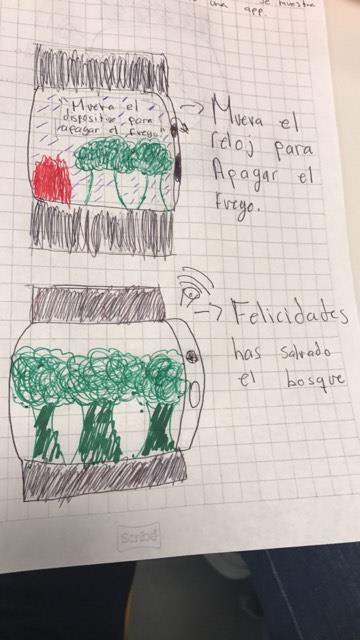 se muestra
una app.
"Mueva el
dispositivo para
apagar el fuego"
Mueva el
reloj para
Apagar el
Fuego.
Felicidades
has salvado
el bosque
Scribe